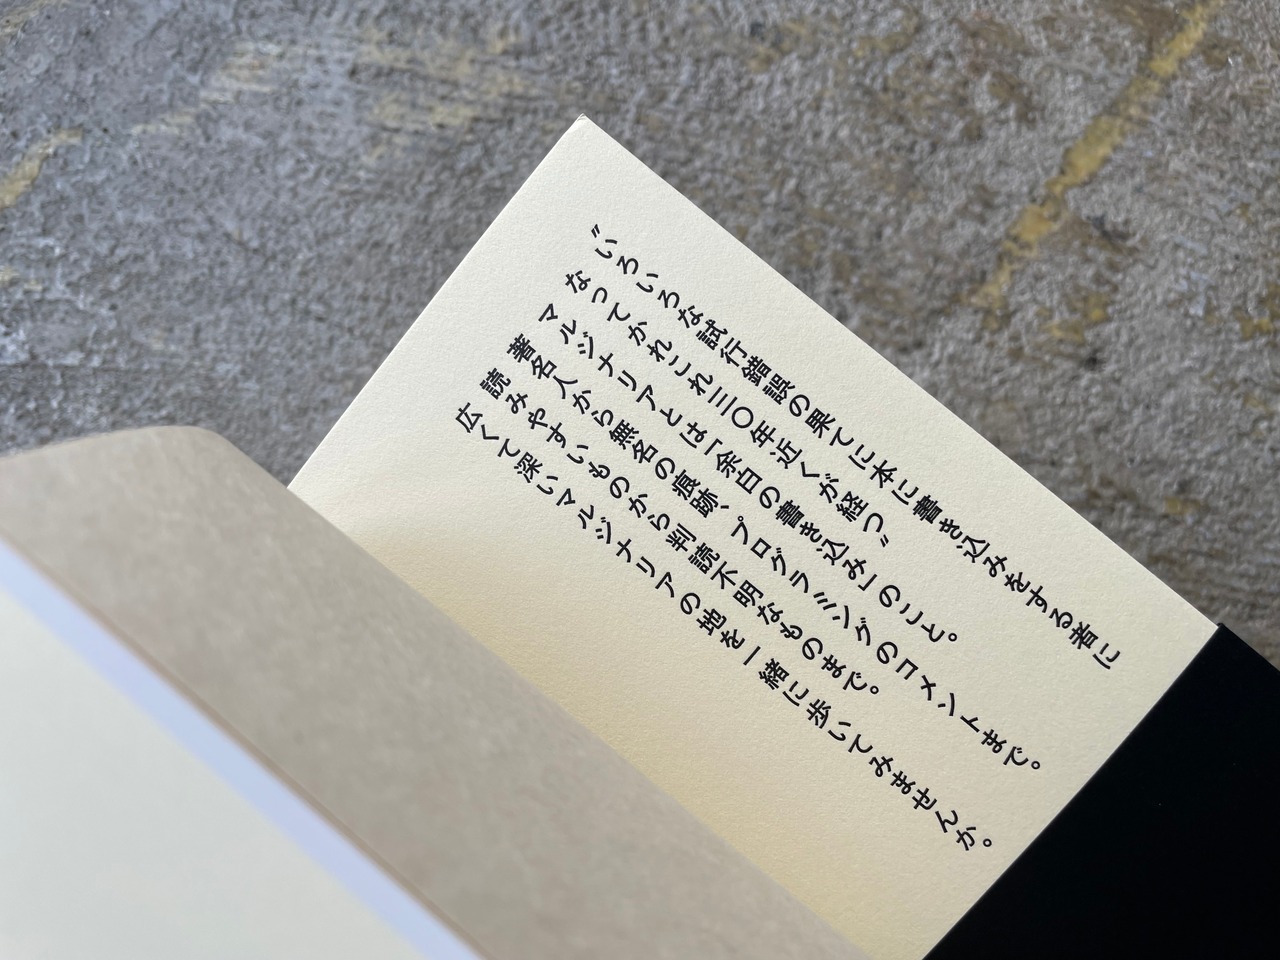 〝いろいろな試行錯誤の果てに本に書き込みをする者に
なってかれこれ三〇年近くが経つ〟
マルジナリアとは「余白の書き込み」のこと。
著名人から無名の痕跡、プログラミングのコメントまで。
読みやすいものから判読不明なものまで。
広くて深いマルジナリアの地を一緒に歩いてみませんか。